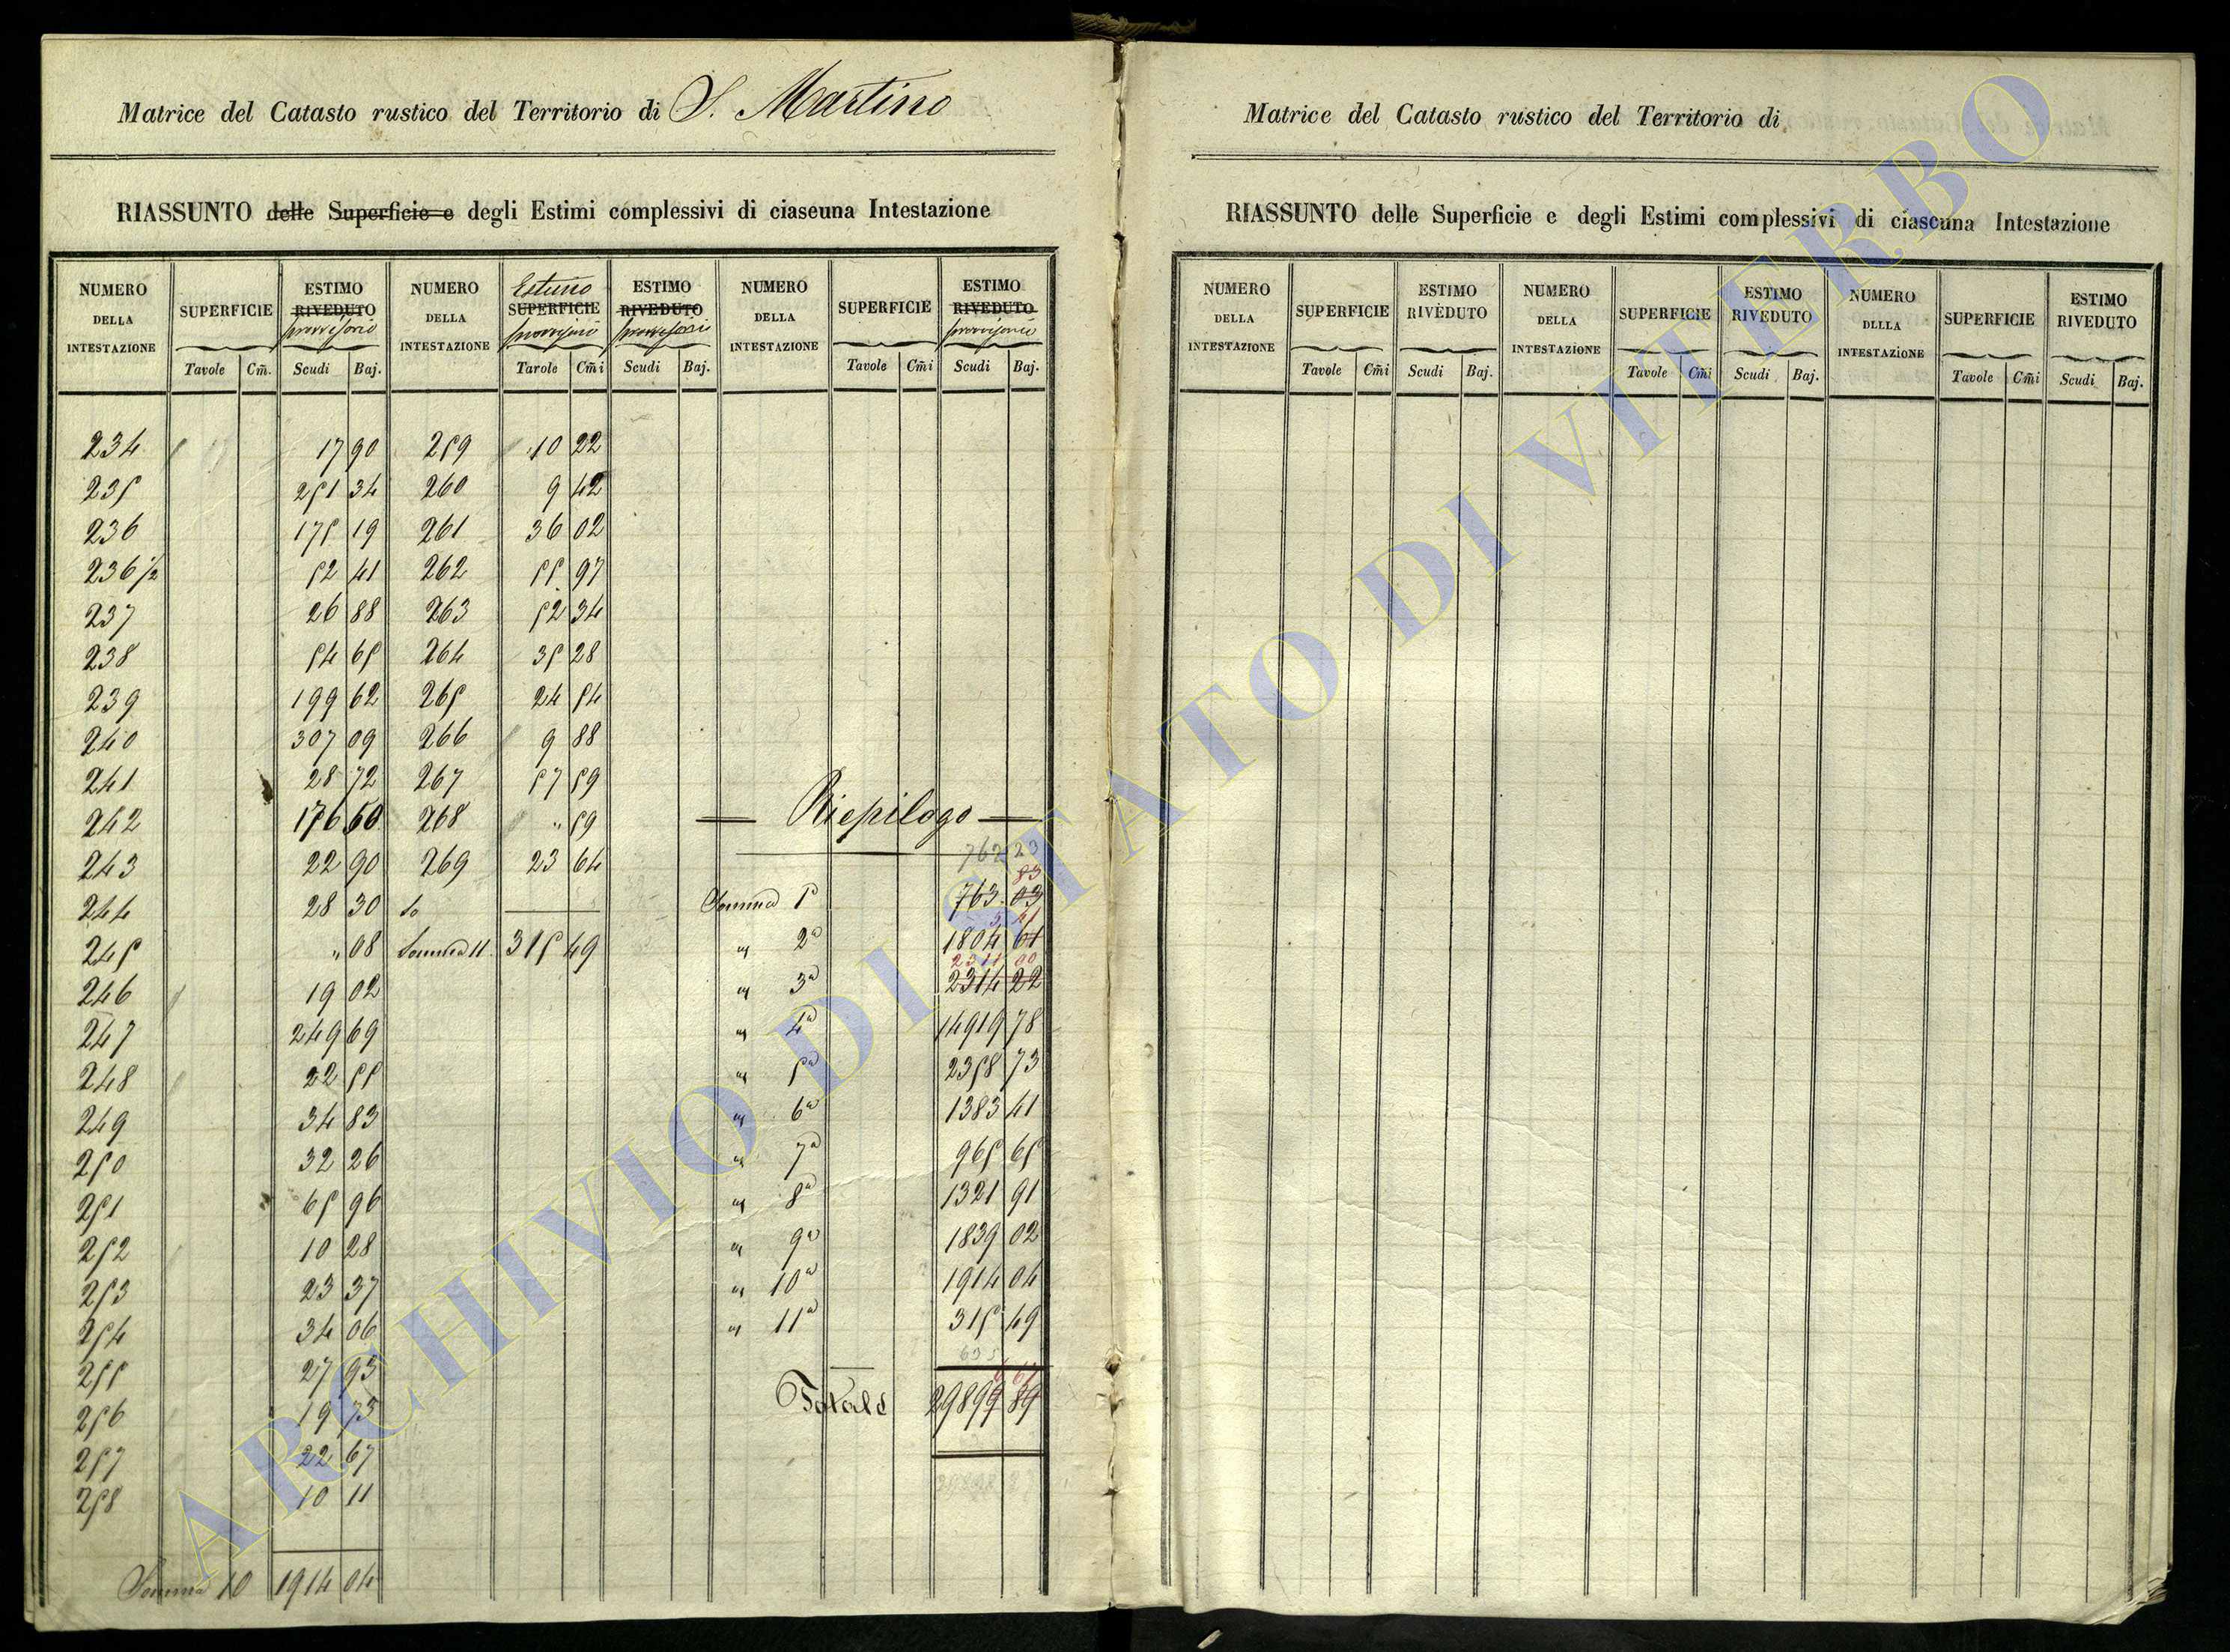 Matrice del Catasto rustico del Territorio di S. Martino
RIASSUNTO delle Superficie e degli Estimi complessivi di ciascuna Intestazione
NUMERO DELLA INTESTAZIONE SUPERFICIE ESTIMO RIVEDUTO provvisorio NUMERO DELLA INTESTAZIONE Estimo SUPERFICIE provvisorio ESTIMO RIVEDUTO provvisorio NUMERO DELLA INTESTAZIONE SUPERFICIE ESTIMO RIVEDUTO provvisorio
Tavole Cm̃. Scudi Baj. Tavole Cm̃i Scudi Baj. Tavole Cm̃i Scudi Baj.
234 17 90 259 10 22
235 251 34 260 9 42
236 175 19 261 36 02
236 1/2 52 41 262 55 97
237 26 88 263 52 34
238 54 65 264 35 28
239 199 62 265 24 54
240 307 09 266 9 88
241 28 72 267 57 59
242 176 60 268 " 59
Riepilogo
243 22 90 269 23 64
762 23
83
244 28 30 Somma 1ª 763 03
5 41
245 " 08 Somma 11 315 49 " 2ª 1804 61
2311 00
246 19 02 " 3ª 2314 22
247 249 69 " 4ª 14919 78
248 22 55 " 5ª 2358 73
249 34 83 " 6ª 1383 41
250 32 26 " 7ª 965 65
251 65 96 " 8ª 1321 91
252 10 28 " 9ª 1839 02
253 23 37 " 10ª 1914 04
254 34 06 " 11ª 315 49
255 27 93
6 67
256 19 73 Totale 29899 89
257 22 67
258 10 11
Somma 10 1914 04
Matrice del Catasto rustico del Territorio di
RIASSUNTO delle Superficie e degli Estimi complessivi di ciascuna Intestazione
NUMERO DELLA INTESTAZIONE SUPERFICIE ESTIMO RIVEDUTO NUMERO DELLA INTESTAZIONE SUPERFICIE ESTIMO RIVEDUTO NUMERO DLLLA INTESTAZIONE SUPERFICIE ESTIMO RIVEDUTO
Tavole Cm̃i Scudi Baj. Tavole Cm̃i Scudi Baj. Tavole Cm̃i Scudi Baj.
ARCHIVIO DI STATO DI VITERBO